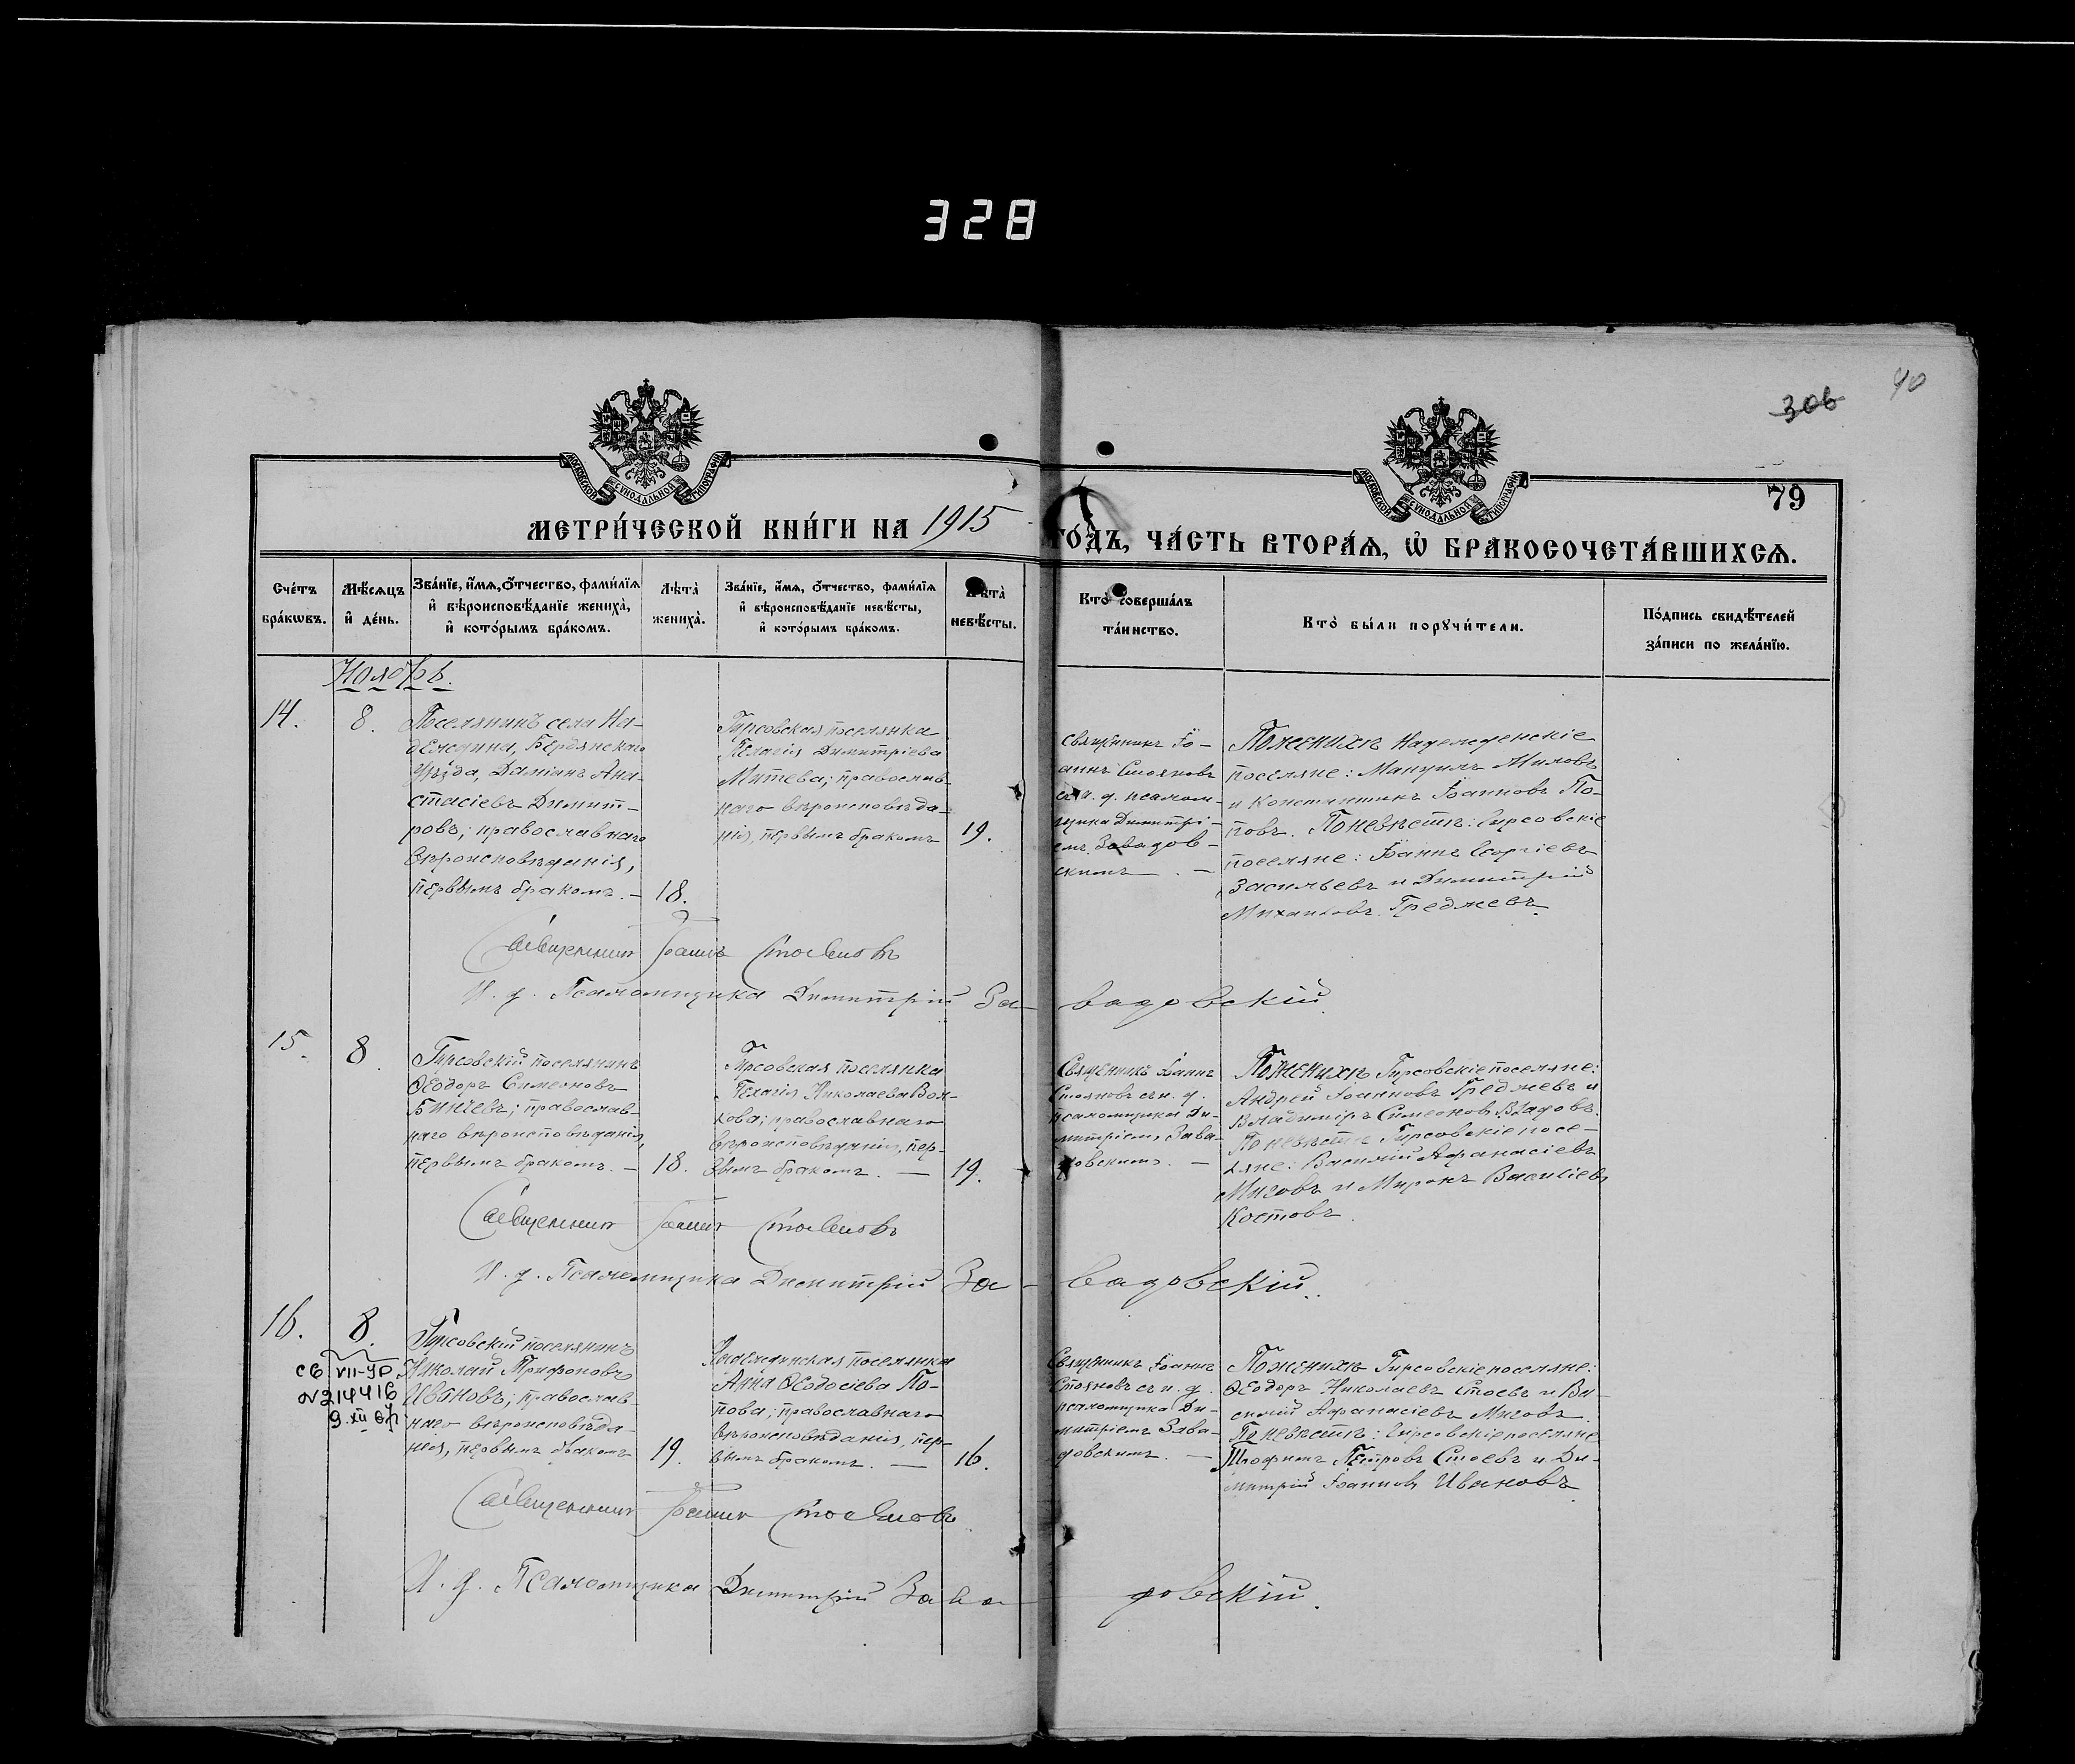 328
40
306
МОСКОВСКОЙ СѴНОДАЛЬНОЙ ТИПОГРАФІИ
МОСКОВСКОЙ СѴНОДАЛЬНОЙ ТИПОГРАФІИ
79
МЕТРИ́ЧЕСКОЙ КНИ́ГИ НА 1915 ГО́ДЪ, ЧА́СТЬ ВТОРА́Я, Ѡ҆ БРАКОСОЧЕТА́ВШИХСЯ.
Сче́тъ бра́кѡвъ.
Мѣ́сяцъ и҆ де́нь.
Зва́нїе, и҆́мя, ѻ҆́тчество, фами́лїя и҆ вѣроисповѣ́данїе жениха̀, и҆ кото́рымъ бра́комъ.
Лѣта̀ жениха̀.
Зва́нїе, и҆́мя, ѻ҆́тчество, фами́лїя и҆ вѣроисповѣ́данїе невѣ́сты, и҆ кото́рымъ бра́комъ.
Лѣта̀ невѣ́сты.
Кто̀ соверша́лъ та́инство.
Кто̀ бы́ли порꙋчи́тели.
По́дпись свидѣ́телей за́писи по жела́нїю.
Ноябрь.
14.
8.
Поселянинъ села На-
деждина, Бердянскаго
уѣзда, Даміанъ Ана-
стасіевъ Димит-
ровъ; православнаго
вѣроисповѣданія,
первымъ бракомъ. —
18.
Гирсовская поселянка
Пелагія Димитріева
Митева; православ-
наго вѣроисповѣда-
нія, первымъ бракомъ
19.
Священникъ Іо-
аннъ Стояновъ
съ и. д. псалом-
щика Димитрі-
емъ Завадов-
скимъ. —
По женихѣ Надежденскіе
поселяне: Мануилъ
и Константинъ Іоанновъ По-
повъ. По невѣстѣ: Гирсовскіе
поселяне: Іоаннъ Георгіевъ
и Димитрій
Михаиловъ Греджевъ.
Священник Іоаннъ Стояновъ
И. д. Псаломщика Димитрій Завадовскій.
15.
8.
Гирсовскій поселянинъ
Ѳеодоръ Симеоновъ
Бинчевъ; православ-
наго вѣроисповѣданія,
первымъ бракомъ. —
18.
Гирсовская поселянка
Пелагія Николаева Вол-
кова; православнаго
вѣроисповѣданія, пер-
вымъ бракомъ. —
19.
Священникъ Іоаннъ
Стояновъ съ и. д.
псаломщика Ди-
митріемъ Зава-
довскимъ. —
По женихѣ Гирсовскіе поселяне:
Андрей Іоанновъ Греджевъ и
Владиміръ Симеоновъ
По невѣстѣ Гирсовскіе посе-
ляне: Василій Афанасіевъ
Миговъ и Миронъ Василіевъ
Костовъ.
Священник Іоаннъ Стояновъ
И. д. Псаломщика Димитрій Завадовскій.
16.
8.
св VII-ЯР
N214416
9. XII
Гирсовскій поселянинъ
Николай Трифоновъ
Ивановъ; православ-
наго вѣроисповѣда-
нія, первымъ бракомъ
19.
Надеждинская поселянка
Анна Ѳеодосіева По-
пова; православнаго
вѣроисповѣданія, пер-
вымъ бракомъ. —
16.
Священникъ Іоаннъ
Стояновъ съ и. д.
псаломщика Ди-
митріемъ Зава-
довскимъ. —
По женихѣ Гирсовскіе поселяне:
Ѳеодоръ Николаевъ Стоевъ и Ва-
силій Афанасіевъ Миговъ.
По невѣстѣ: Гирсовскіе поселяне
Трофимъ Петровъ Стоевъ и Ди-
митрій Іоанновъ Ивановъ.
Священник Іоаннъ Стояновъ
И. д. Псаломщика Димитрій Завадовскій.